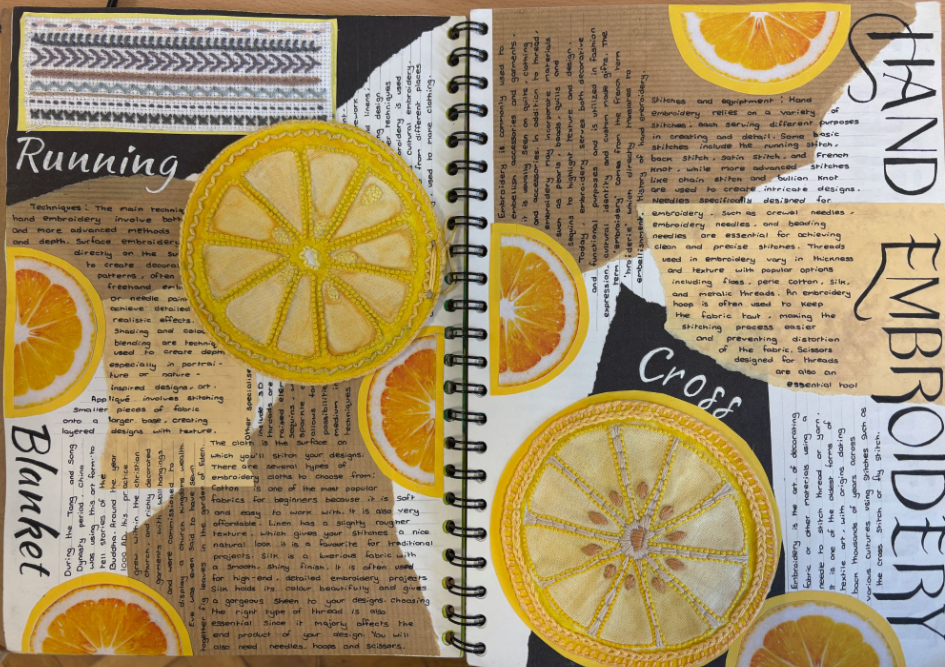 Running
Techniques: The main techniq
hand embroidery involve both
and more advanced methods
and depth. Surface embroidery
directly on the su
to create decora
patterns, often
freehand emb
or needle pain
achieve detailed
realistic effects.
Shading and colou
blending are techniq
used to create depth
especially in portrai-
ture or nature -
inspired designs. art.
Appliqué involves stitching
smaller pieces of fabric
onto a larger base, creating
layered designs with texture.
Blanket
During the Tang and Song
Dynasty period, china
was using this art form to
tell stories of the
Buddha. Around the year
1000 AD, this practice
grew within the christian
church, and richly decorated
garments, wall hangings
and were commissioned to
display church and kingdoms wealth
Eve was even said to have sewn
together fig leaves in the garden of Eden.
The cloth is the surface on
which you'll stitch your designs.
There are several types of
embroidery cloths to choose from.
Cotton is one of the most popular
fabrics for beginners because it is soft
and easy to work with. It is also very
affordable. Linen has a slightly rougher
texture, which gives your stitches a nice
natural look. It is a favourite for traditional
projects. Silk is a luxurious fabric with
a smooth, shiny finish. It is often used
for high-end, detailed embroidery projects
Silk holds its colour beautifully and gives
a gorgeous sheen to your designs. choosing
the right type of thread is also
essential since it majorly affects the
end product of your design. You will
also need needles, hoops and scissors.
HAND EMBROIDERY
Embroidery is commonly used to
embellish accessories and garments.
It is usually seen on quilts, clothing
and accessories. In addition to thread,
embroidery may incorporate materials
such as pearls, beads, quills and
sequins to highlight texture and design.
Today, embroidery serves both decorative
and functional purposes and is utilized in fashion
expression, cultural identity and custom made gifts. The
term embroidery comes from the french term
'broiderie' which directly translates to
embellishment. History of hand embroidery.
Stitches and equipment: Hand
embroidery relies on a variety of
stitches, each serving different purposes
in creating and detail. Some basic
stitches include the running stitch,
back stitch, satin stitch, and French
knot, while more advanced stitches
like chain stitch and bullion knot
are used to create intricate designs.
Needles specifically designed for
embroidery, such as crewel needles,
embroidery needles, and beading
needles are essential for achieving
clean and precise stitches. Threads
used in embroidery vary in thickness
and texture with popular options
including floss, perle cotton, silk,
and metalic threads. An embroidery
hoop is often used to keep
the fabric taut, making the
stitching process easier
and preventing distortion
of the fabric. Scissors
designed for threads
are also an
essential tool
Cross
Embroidery is the art of decorating
fabric or other materials using a
needle to stitch thread or yarn.
It is one of the oldest forms of
textile art, with origins dating
back thousands of years across
various cultures using stitches such as
the cross stitch or fly stitch.